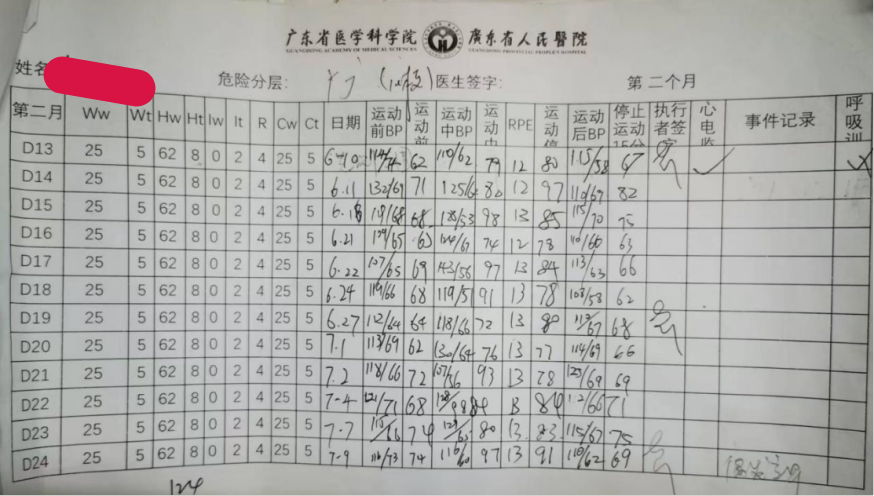 广东省医学科学院 廣東省人民醫院
GUANGDONG ACADEMY OF MEDICAL SCIENCES GUANGDONG PROVINCIAL PEOPLE'S HOSPITAL
姓名 危险分层: 医生签字: 第 二个月
第二月 Ww Wt Hw Ht Iw It R Cw Ct 日期 运动前BP 运动前 运动中BP 运动中 RPE 运动停 运动后BP 停止运动15分 执行者签字 心电监 事件记录 呼吸训
D13 25 5 62 8 0 2 4 25 5 6-10 62 110/62 79 12 80 115/58 67 ✓
D14 25 5 62 8 0 2 4 25 5 6.11 132/69 71 80 12 97 110/67 82
D15 25 5 62 8 0 2 4 25 5 6.18 119/68 68 98 13 85 115/70 75
D16 25 5 62 8 0 2 4 25 5 6.21 109/65 63 74 12 78 110/66 63
D17 25 5 62 8 0 2 4 25 5 6.22 107/65 69 143/56 97 13 84 113/63 66
D18 25 5 62 8 0 2 4 25 5 6.24 119/66 68 119/51 91 13 78 108/58 62
D19 25 5 62 8 0 2 4 25 5 6.27 112/64 64 118/66 72 13 80 68
D20 25 5 62 8 0 2 4 25 5 7.1 113/69 62 130/64 76 13 77 114/69 66
D21 25 5 62 8 0 2 4 25 5 7.2 118/66 72 107/56 93 13 78 123/69 69
D22 25 5 62 8 0 2 4 25 5 7-4 121/71 68 84 13 84 112/66 71
D23 25 5 62 8 0 2 4 25 5 7.7 115/66 74 80 13 83 115/67 75
D24 25 5 62 8 0 2 4 25 5 7-9 116/73 74 116/60 97 13 91 110/62 69
124